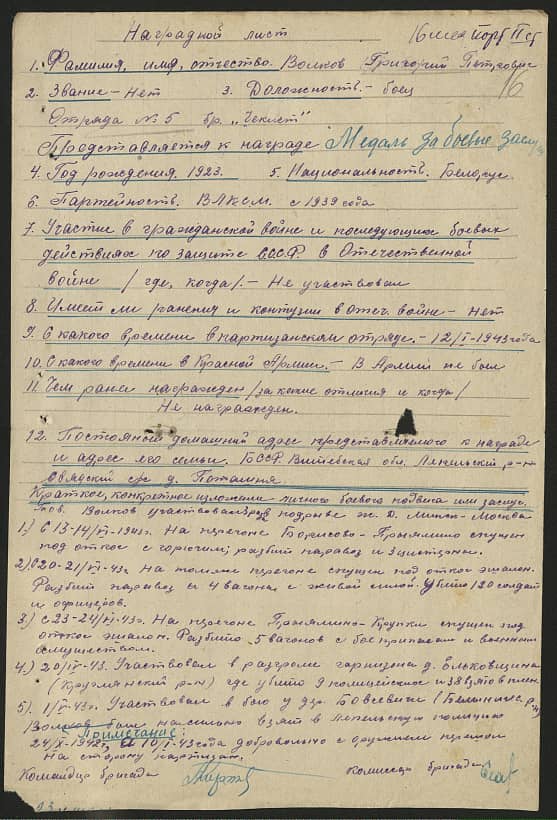 Наградной лист
1. Фамилия, имя, отчество. Волков Григорий Петрович
16
2. Звание - Нет 3. Должность. - боец
Отряда № 5 бр. „Чекист"
Представляется к награде Медаль За боевые заслуги
4. Год рождения. 1923. 5. Национальность. Белорус
6. Партейность. ВЛКСМ. с 1939 года
7. Участие в гражданской войне и последующих боевых
действиях по защите СССР в Отечественной
войне /где, когда/. - Не участвовал
8. Имеет ли ранения и контузии в отеч. войне - Нет
9. С какого времени в партизанском отряде. - 12/I-1943 года
10. С какого времени в Красной Армии. - В Армии не был
11. Чем ранее награжден /за какие отличия и когда/
Не награжден.
12. Постоянный домашний адрес представляемого к награде
и адрес его семьи. БССР Витебская обл. Лепельский р-н
с/с д.
Краткое, конкретное изложение личного боевого подвига или заслуг.
Волков участвовал в подрыве ж.д. Минск-Москва
1.) С 13-14/VI-1943г. На перегоне Борисово-Приямино спущен
под откос с горючим, разбит паровоз и 3 цистерны.
2) С 20-21/VI-43г На том же перегоне спущен под откос эшалон.
Разбит паровоз и 4 вагона с живой силой. Убито 120 солдат
и офицеров.
3.) С 23-24/VI-43г. На перегоне Приямино-Крупки спущен под
откос эшалон. Разбито 5 вагонов с боеприпасам и военным
имуществом.
4.) 20/IV-43. Участвовал в разгроме гарнизона д. Ельковщина
(Круглянский р-н) где убито 9 полицейских и 38 взято в плен.
5). 1/V-43г. Участвовал в бою у дер. Бовсевичи (Белынич. р-н)
Примечание:
Волков был насильно взят в лепельскую полицию
24/X-1942г, и 10/I-43 года добровольно с оружием перешел
на сторону партизан.
Командир бригады Комиссар бригады